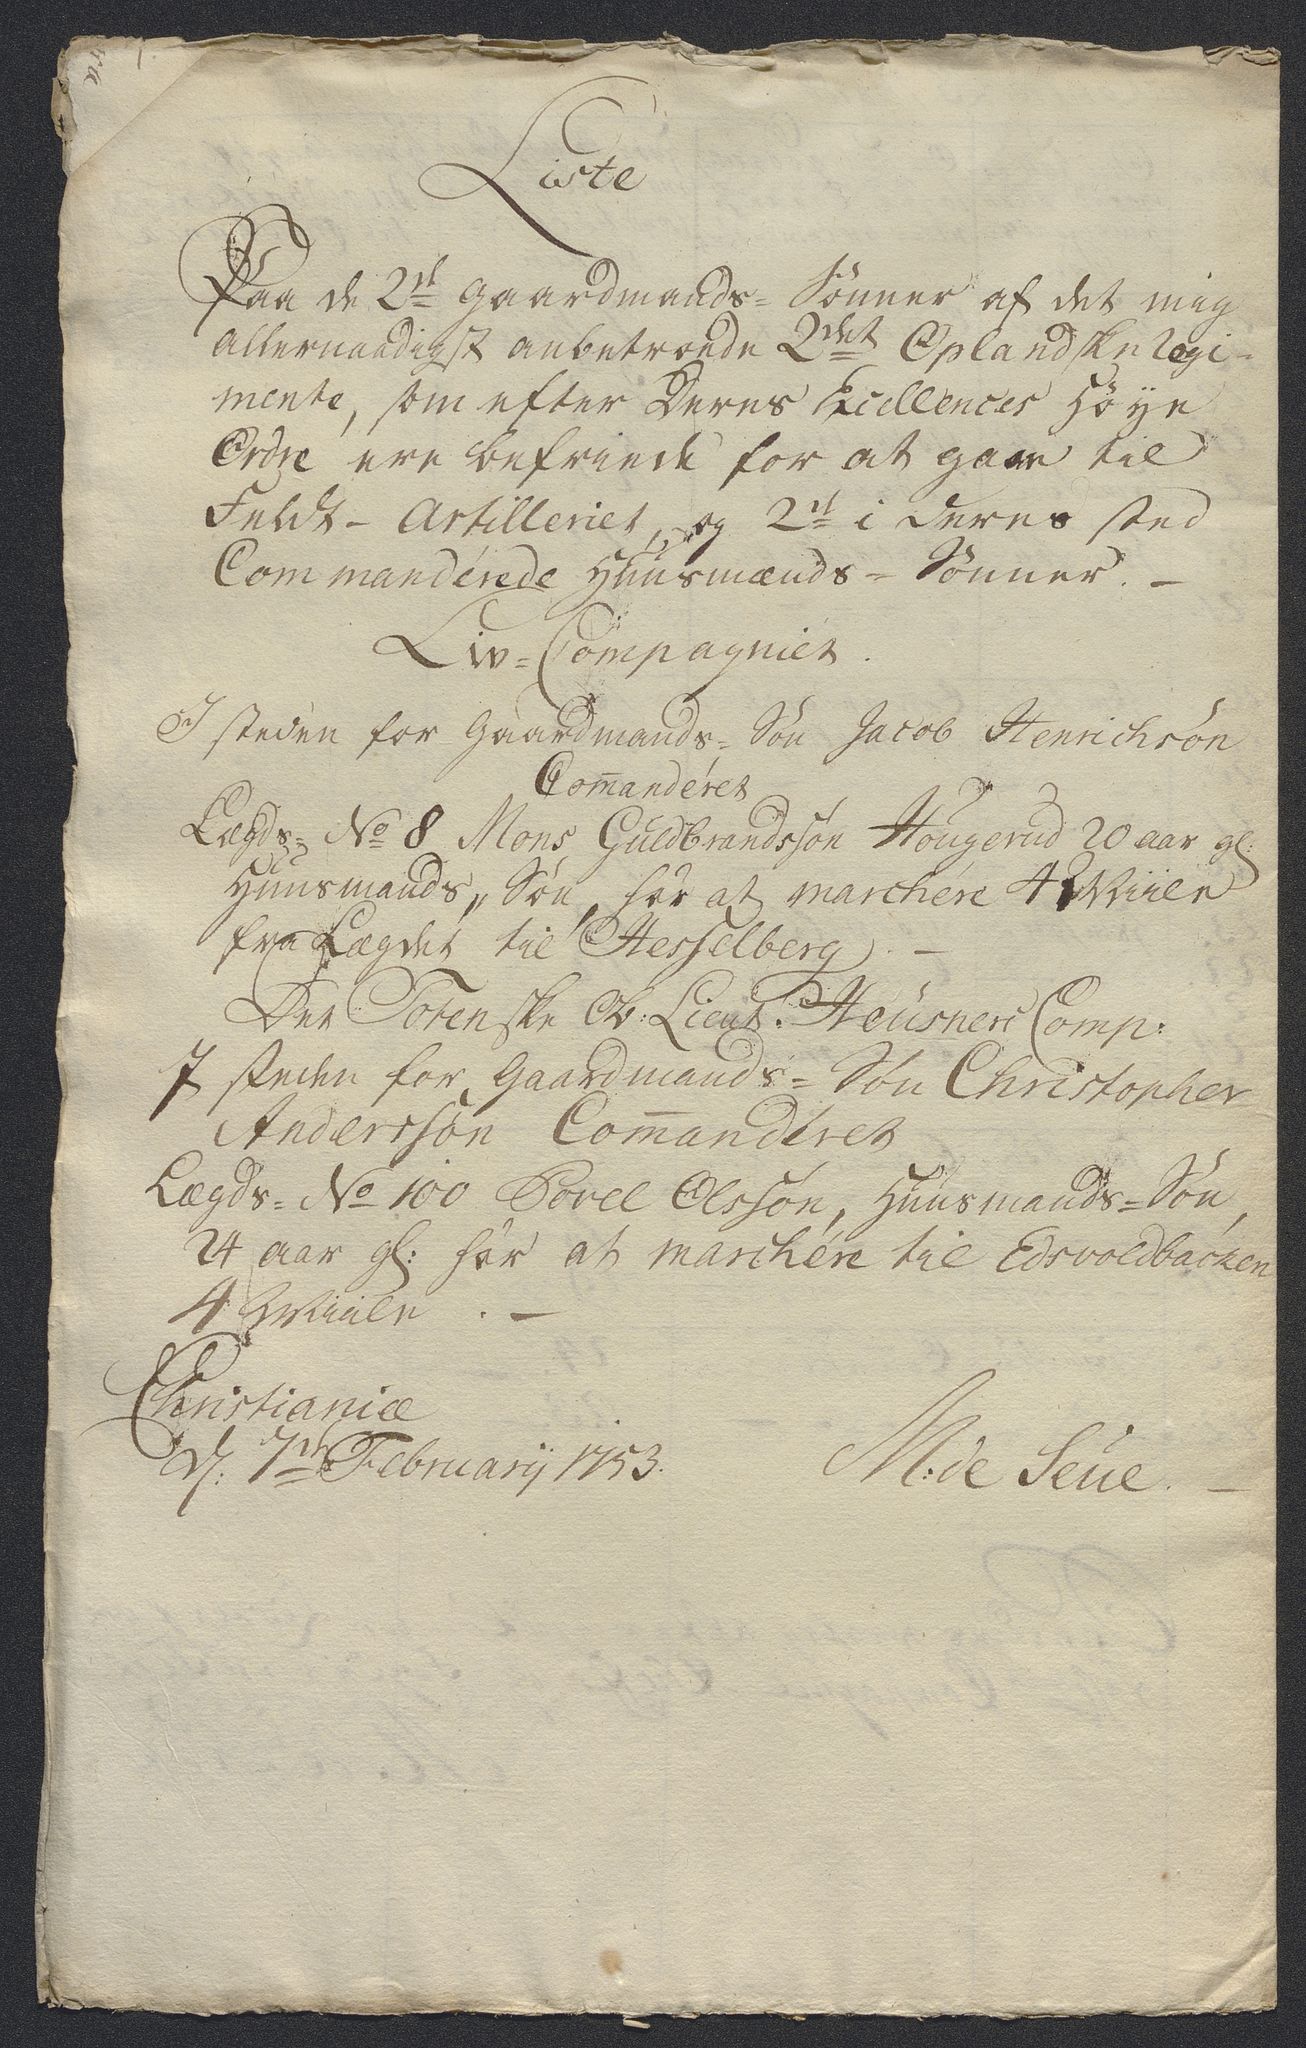 Liste
Paa de 2de Gaardmands= Sönner af det mig
allernaadigst anbetroede 2det Oplandske Regi-
mente, som efter Deres Excellences Höye
Ordre ere befriede for at gaae til
Feldt- Artilleriet, og 2de i deres sted
Commanderede Huusmænds= Sönner. -
Liv= Compagniet.
I steden for Gaardmands= Sön Jacob Henrichsön
Com̅anderet
Lægds= No 8 Mons Guldbrandssön Hougerud 20 aar gl:
Huusmands„ Sön, har at marchere 4 Miile
fra Lægdet til Hesselberg. -
Det Totenske Ob: Lieut: Heusners Comp:
I steden for Gaardmands= Sön Christopher
Anderssön Com̅anderet
Lægds= No 100 Povel Olssön, Huusmands= Sön,
24 aar gl: har at marchere til Edsvoldbacken
4 Miile. -
Christianiæ
d: 7de Februarij 1753.
M: de Seüe. -